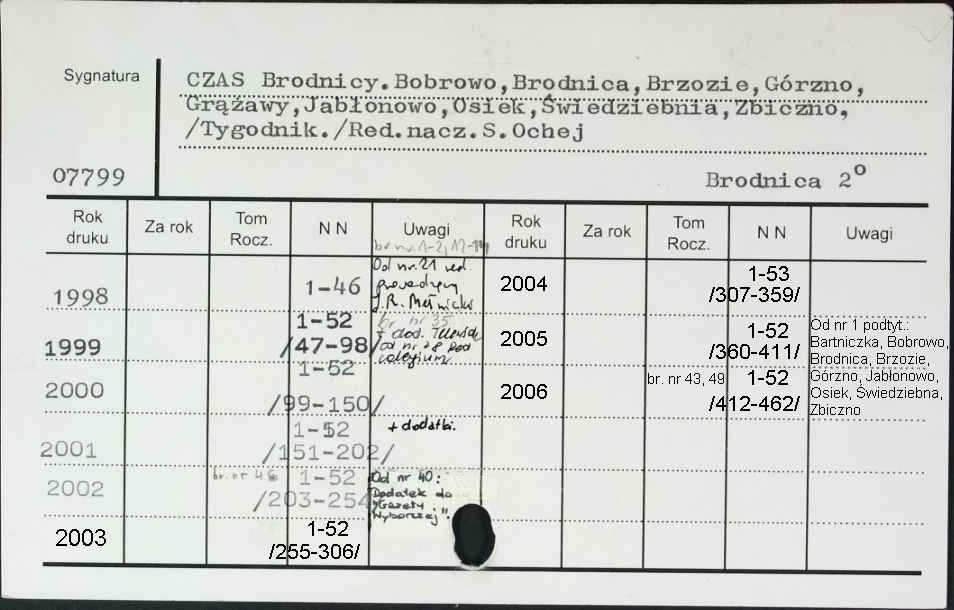 Sygnatura
CZAS Brodnicy.Bobrowo,Brodnica,Brzozie,Górzno,
Grążawy,Jabłonowo,Osiek,Świedziebnia,Zbiczno,
/Tygodnik./Red.nacz.S.Ochej
07799
Brodnica 2°
Rok druku Za rok Tom Rocz. N N Uwagi Rok druku Za rok Tom Rocz. N N Uwagi
br nr. 1-2,
1998 1-46
Od nr. 21 red.
J.R.
1999 1-52
/47-98/
br nr 35
+ dod.
od nr 28
2000 1-52
/99-150/
2001 1-52
/151-202/
+ dodatki.
2002 br. nr 1-52
/203-254
Od nr 40:
Dodatek do
"Gazety
Wyborczej".
2003 1-52
/255-306/
2004 1-53
/307-359/
2005 1-52
/360-411/
2006 br. nr 43, 49 1-52
/412-462/
Od nr 1 podtyt.:
Bartniczka, Bobrowo,
Brodnica, Brzozie,
Górzno, Jabłonowo,
Osiek, Świedziebna,
Zbiczno